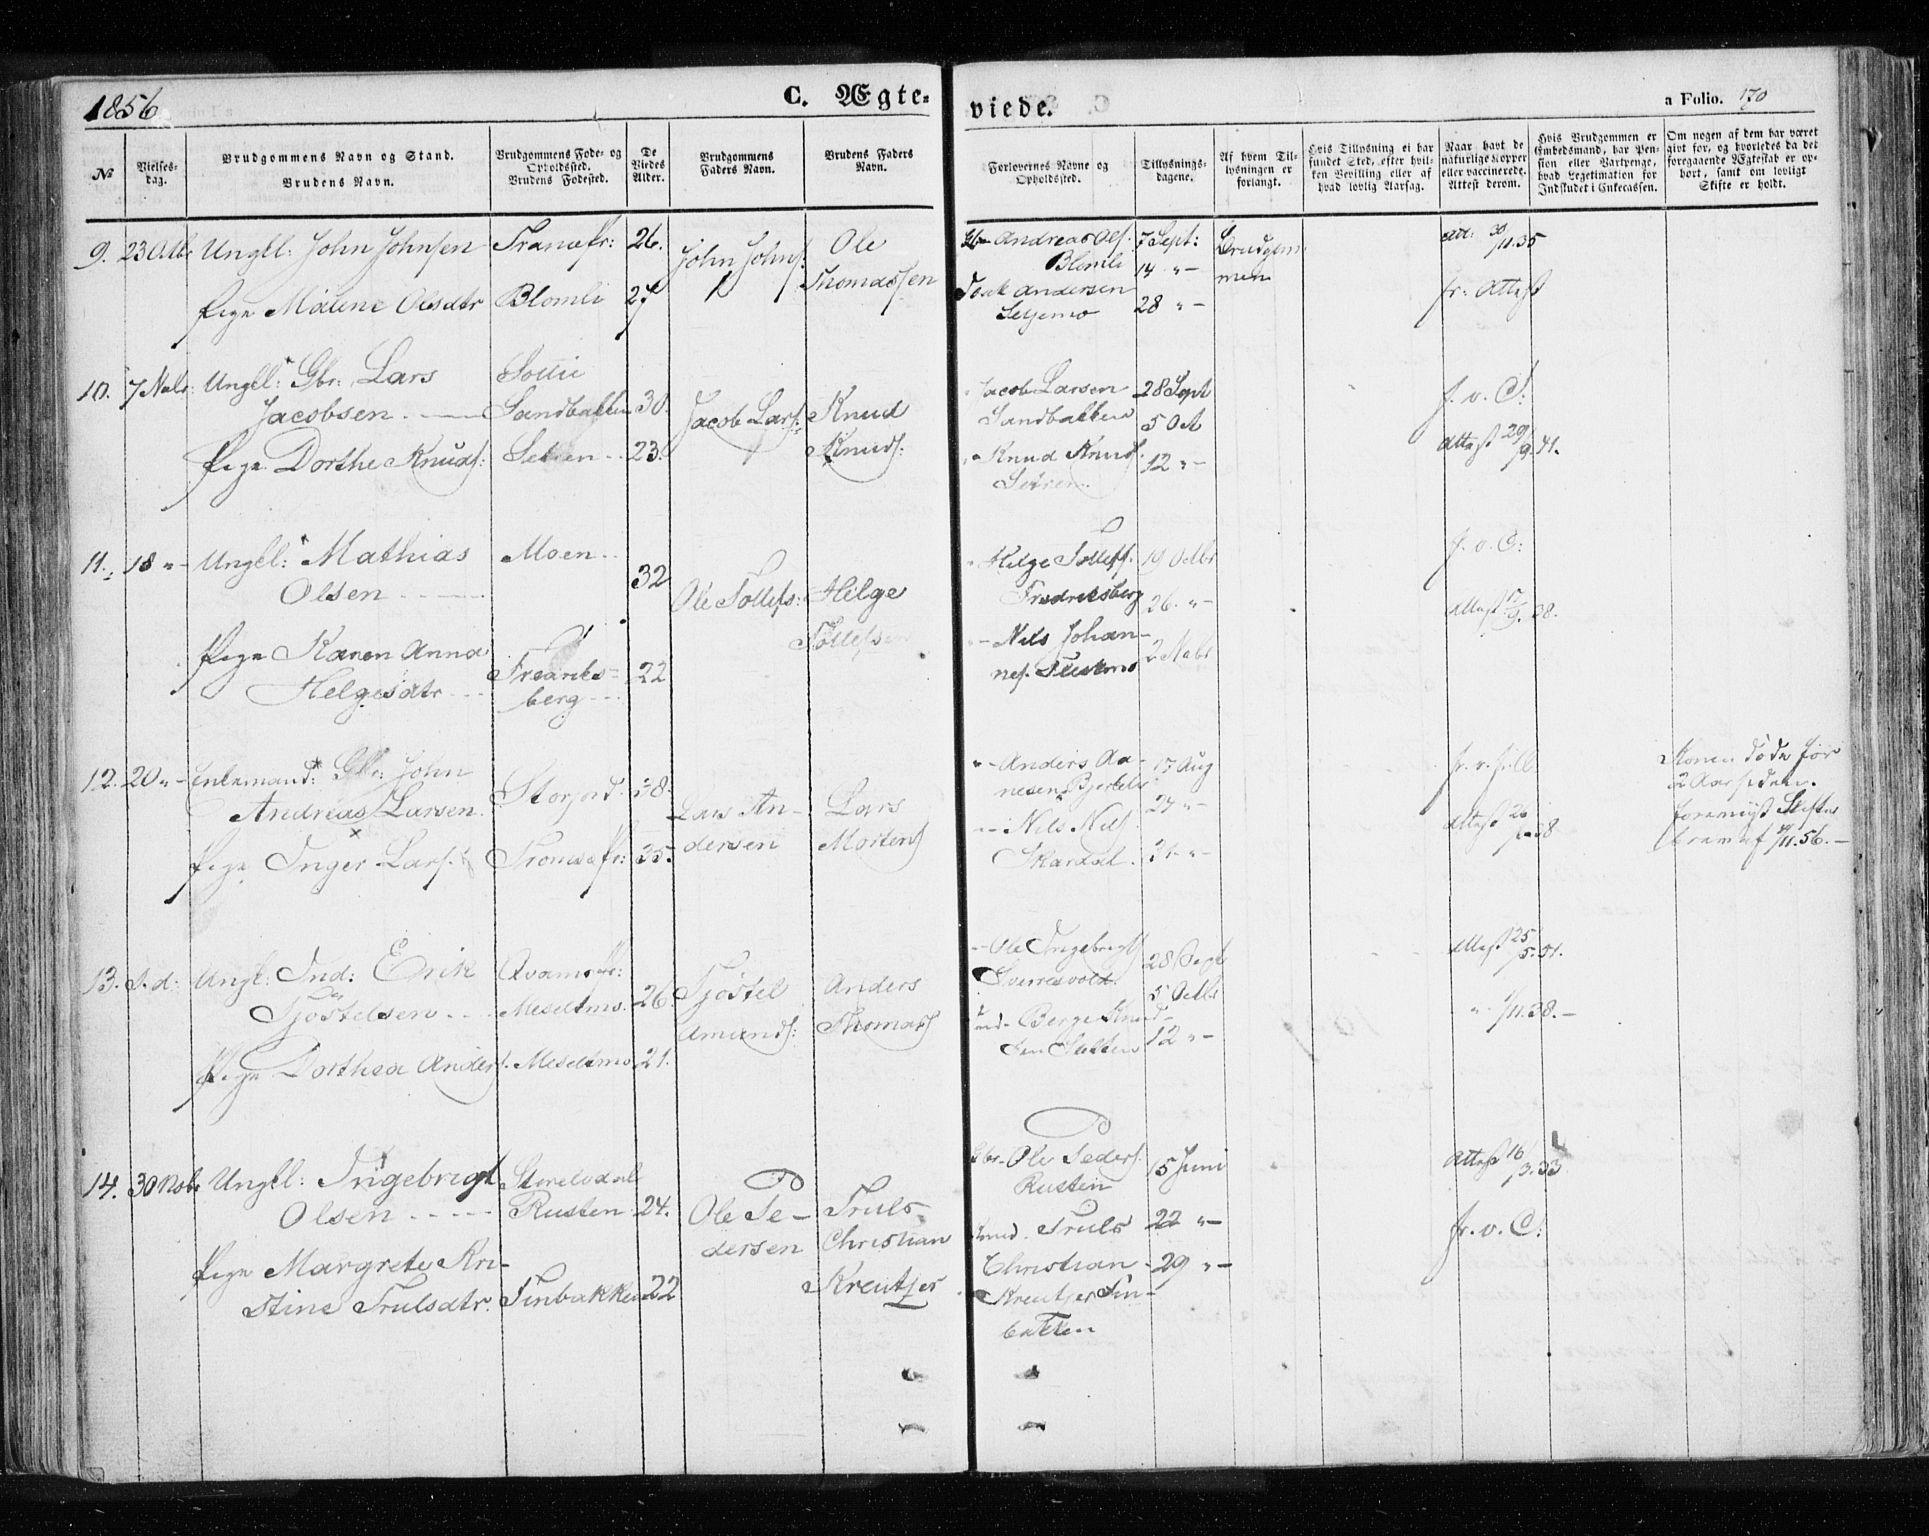 1856
C. Ægte-
viede.
a Folio. 170
№
Vielses-
dag.
Brudgommens Navn og Stand.
Brudens Navn.
Brudgommens Føde- og
Opholdssted.
Brudens Fødested.
De
Viedes
Alder.
Brudgommens
Faders Navn.
Brudens Faders
Navn.
Forlovernes Navne og
Opholdssted.
Tillysnings-
dagene.
Af hvem Til-
lysningen er
forlangt.
Hvis Tillysning ei har
fundet Sted, efter hvil-
ken Bevilling eller af
hvad lovlig Aarsag.
Naar havt de
naturlige Kopper
eller vaccinerede.
Attest derom.
Hvis Brudgommen er
Embedsmand, har Pen-
sion eller Vartpenge,
hvad Legetimation for
Indskudet i Enkecassen.
Om nogen af dem har været
givt før, og hvorledes da det
foregaaende Ægteskab er op-
hørt, samt om lovligt
Skifte er holdt.
9. 23 Octbr Ungkl: John Johnsen
Pige Malene Olsdtr
Tranøe Pr:
Blomli
26.
27
John Johns:
Ole
Thomassen
Gbr Andreas Ols.
Blomli
Andersen
Seljemo
7 Sept:
14 "-
28 "-
Brudgom
men
Att: 30/11.35
fr: Attest
10. 7 Nvbr: Ungkl: Gbr: Lars
Jacobsen
Pige Dorthe Knuds:
Sandbakken
Setren
30.
23.
Jacob Lars:
Knud
Knuds:
Jacob Larsen
Sandbakken
Knud Knuds.
Setren
28 Sept
5 Oct
12 "-
f. v. C:
Attest 29/9.41.
11. 18 "- Ungkl: Mathias
Olsen
Pige Karen Anna
Helgesdtr
Moen
Fredriks-
berg
32
22
Ole Tollefs:
Helge
Tollefsen
Helge Tollefs.
Fredriksberg
Nils Johan-
nes.
19 Octbr
26. "-
2 Nvbr
f. v. C:
Attest 17/9.38.
12. 20 "- Enkemand: Gbr: John
Andreas Larsen.
Pige Inger Lars.
Storjord
Tromsøe Pr:
38.
35.
Lars An-
dersen
Lars
Mortens
Anders Aa-
nesen Bjerkeli
Nils Nils.
Skardal.
17 Aug
24 "-
31 "-
Attest
Konen døde for
2 Aar siden.
Forevist Skifte
11.56.
13. S. d: Ungk: Ind: Erik
Tjøstelsen
Pige Dorthea Anders.
Qvams Pr:
Meseltmo.
Meseltmo
26.
21.
Tjøstel
Amunds:
Anders
Thomas
Ole Ingebrigts
Sverresvold.
Ind- Berge Knud-
sen Sletten
28 Sept
5 Octbr
12 "-
Attest 25/5.31.
" 1/11.38.
14. 30 Nvbr Ungkl: Ingebrigt
Olsen
Pige Margrete Kri-
stine Trulsdtr.
Storelvdal
Rusten
Finbakken
24.
22
Ole Pe-
dersen
Truls
Christian
Kreutjer
Gbr- Ole Peders.
Rusten
Truls
Christian
Kreutjer Fin-
bakken
15 Juni
22 "-
29 "-
Attest 16/3.33
fr. v. C: